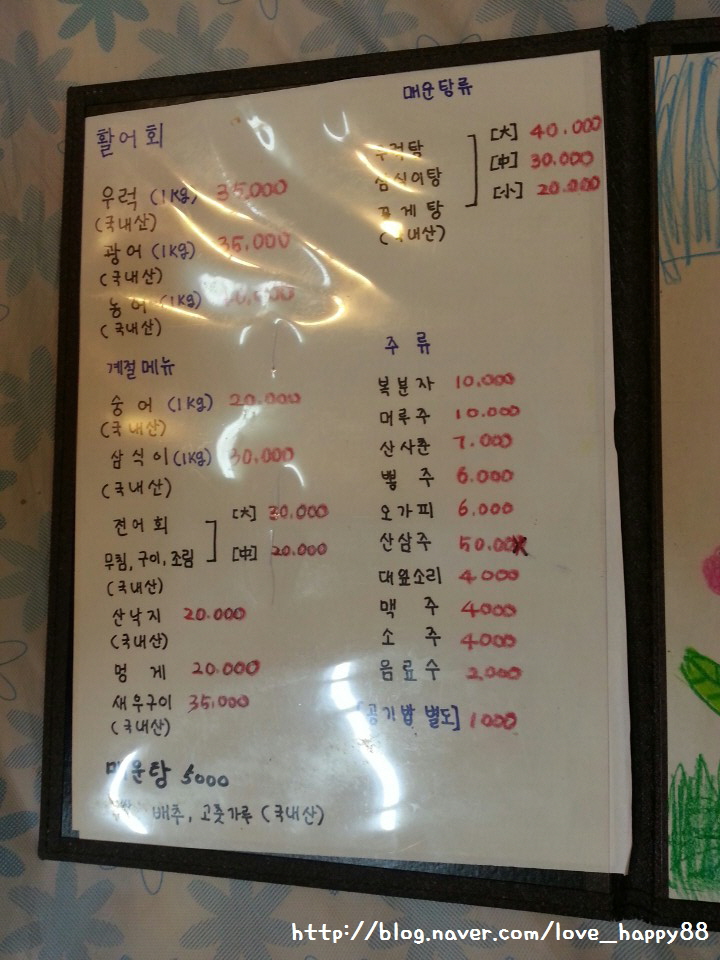 활어회
우럭 (1kg) 35,000
(국내산)
광어 (1kg) 35,000
(국내산)
농어 (1kg)
(국내산)
계절메뉴
숭어 (1kg) 20.000
(국내산)
삼식이 (1kg) 30,000
(국내산)
전어회 [大] 30.000
무침, 구이, 조림 [中] 20.000
(국내산)
산낙지 20.000
(국내산)
멍게 20.000
새우구이 35,000
(국내산)
매운탕 5000
배추, 고춧가루 (국내산)
매운탕류
우럭탕 [大] 40.000
삼식이탕 [中] 30.000
꽃게탕 [小] 20.000
(국내산)
주류
복분자 10,000
머루주 10.000
산사춘 7.000
뽕주 6.000
오가피 6.000
산삼주 50.00
대잎소리 4.000
맥주 4000
소주 4000
음료수 2,000
[공기밥 별도] 1000
http://blog.naver.com/love_happy88